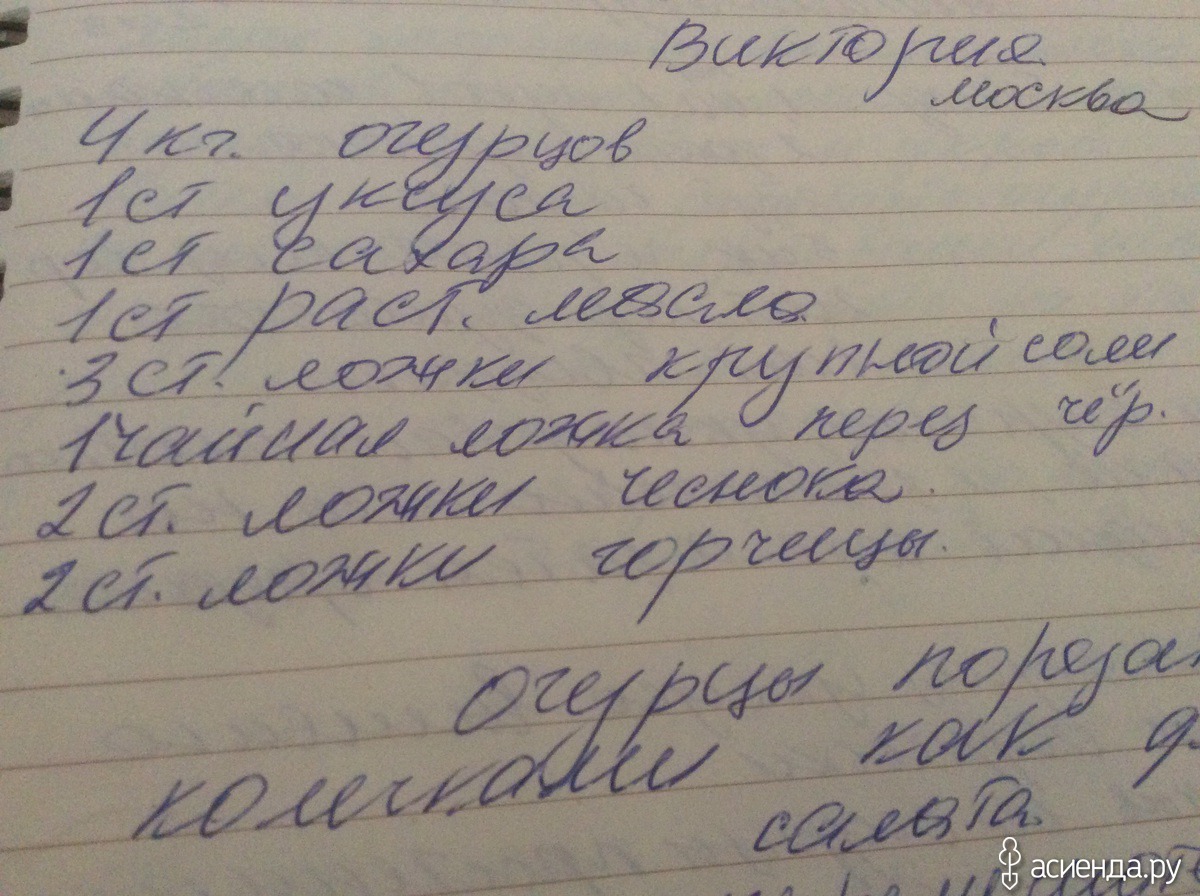 Виктория
москва
4 кг. огурцов
1 ст уксуса
1 ст сахара
1 ст раст. масла
3 ст. ложки крупной соли
1 чайная ложка перец чёр.
2 ст. ложки чеснока.
2 ст. ложки горчицы.
Огурцы пореза
колечками как д
салата.
асиенда.ру